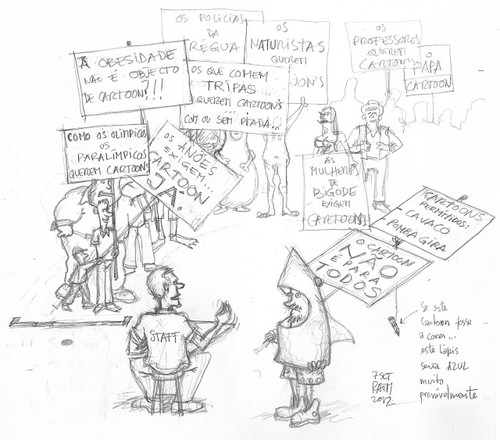 OS POLÍCIAS
DA
RÉGUA
OS
NATURISTAS
QUEREM
OS PROFESSORES
QUEREM
CARTOONS
O
PAPA
CARTOON
A OBESIDADE
NÃO É OBJECTO
DE CARTOONS
!!!
OS QUE COMEM
TRIPAS...
QUEREM CARTOONS
COM OU SEM PITADA...
COMO OS OLÍMPICOS
OS
PARALÍMPICOS
QUEREM CARTOONS
OS
ANÕES
EXIGEM...
CARTOON
JÁ
AS
MULHERES
DE
BIGODE EXIGEM
CARTOON!
CARTOONS
PERMITIDOS:
CAVACO
POMBA GIRA
O CARTOON
NÃO
É PARA
TODOS
STAFF
Se este
Cartoon fosse
a cores...
este lápis
seria AZUL
muito
provavelmente
7 SET
2012